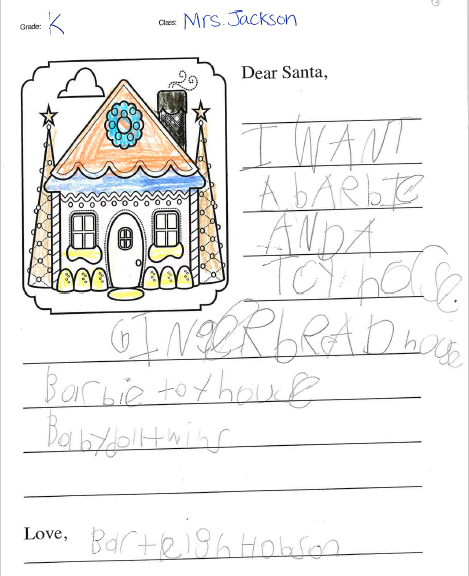 Grade: K Class: Mrs. Jackson
Dear Santa,
I WANT
A bARbIE
AND A
TOY house.
GINgERbREAD house
Barbie toy house
Babydoll twins
Love, Bartleigh Hobson